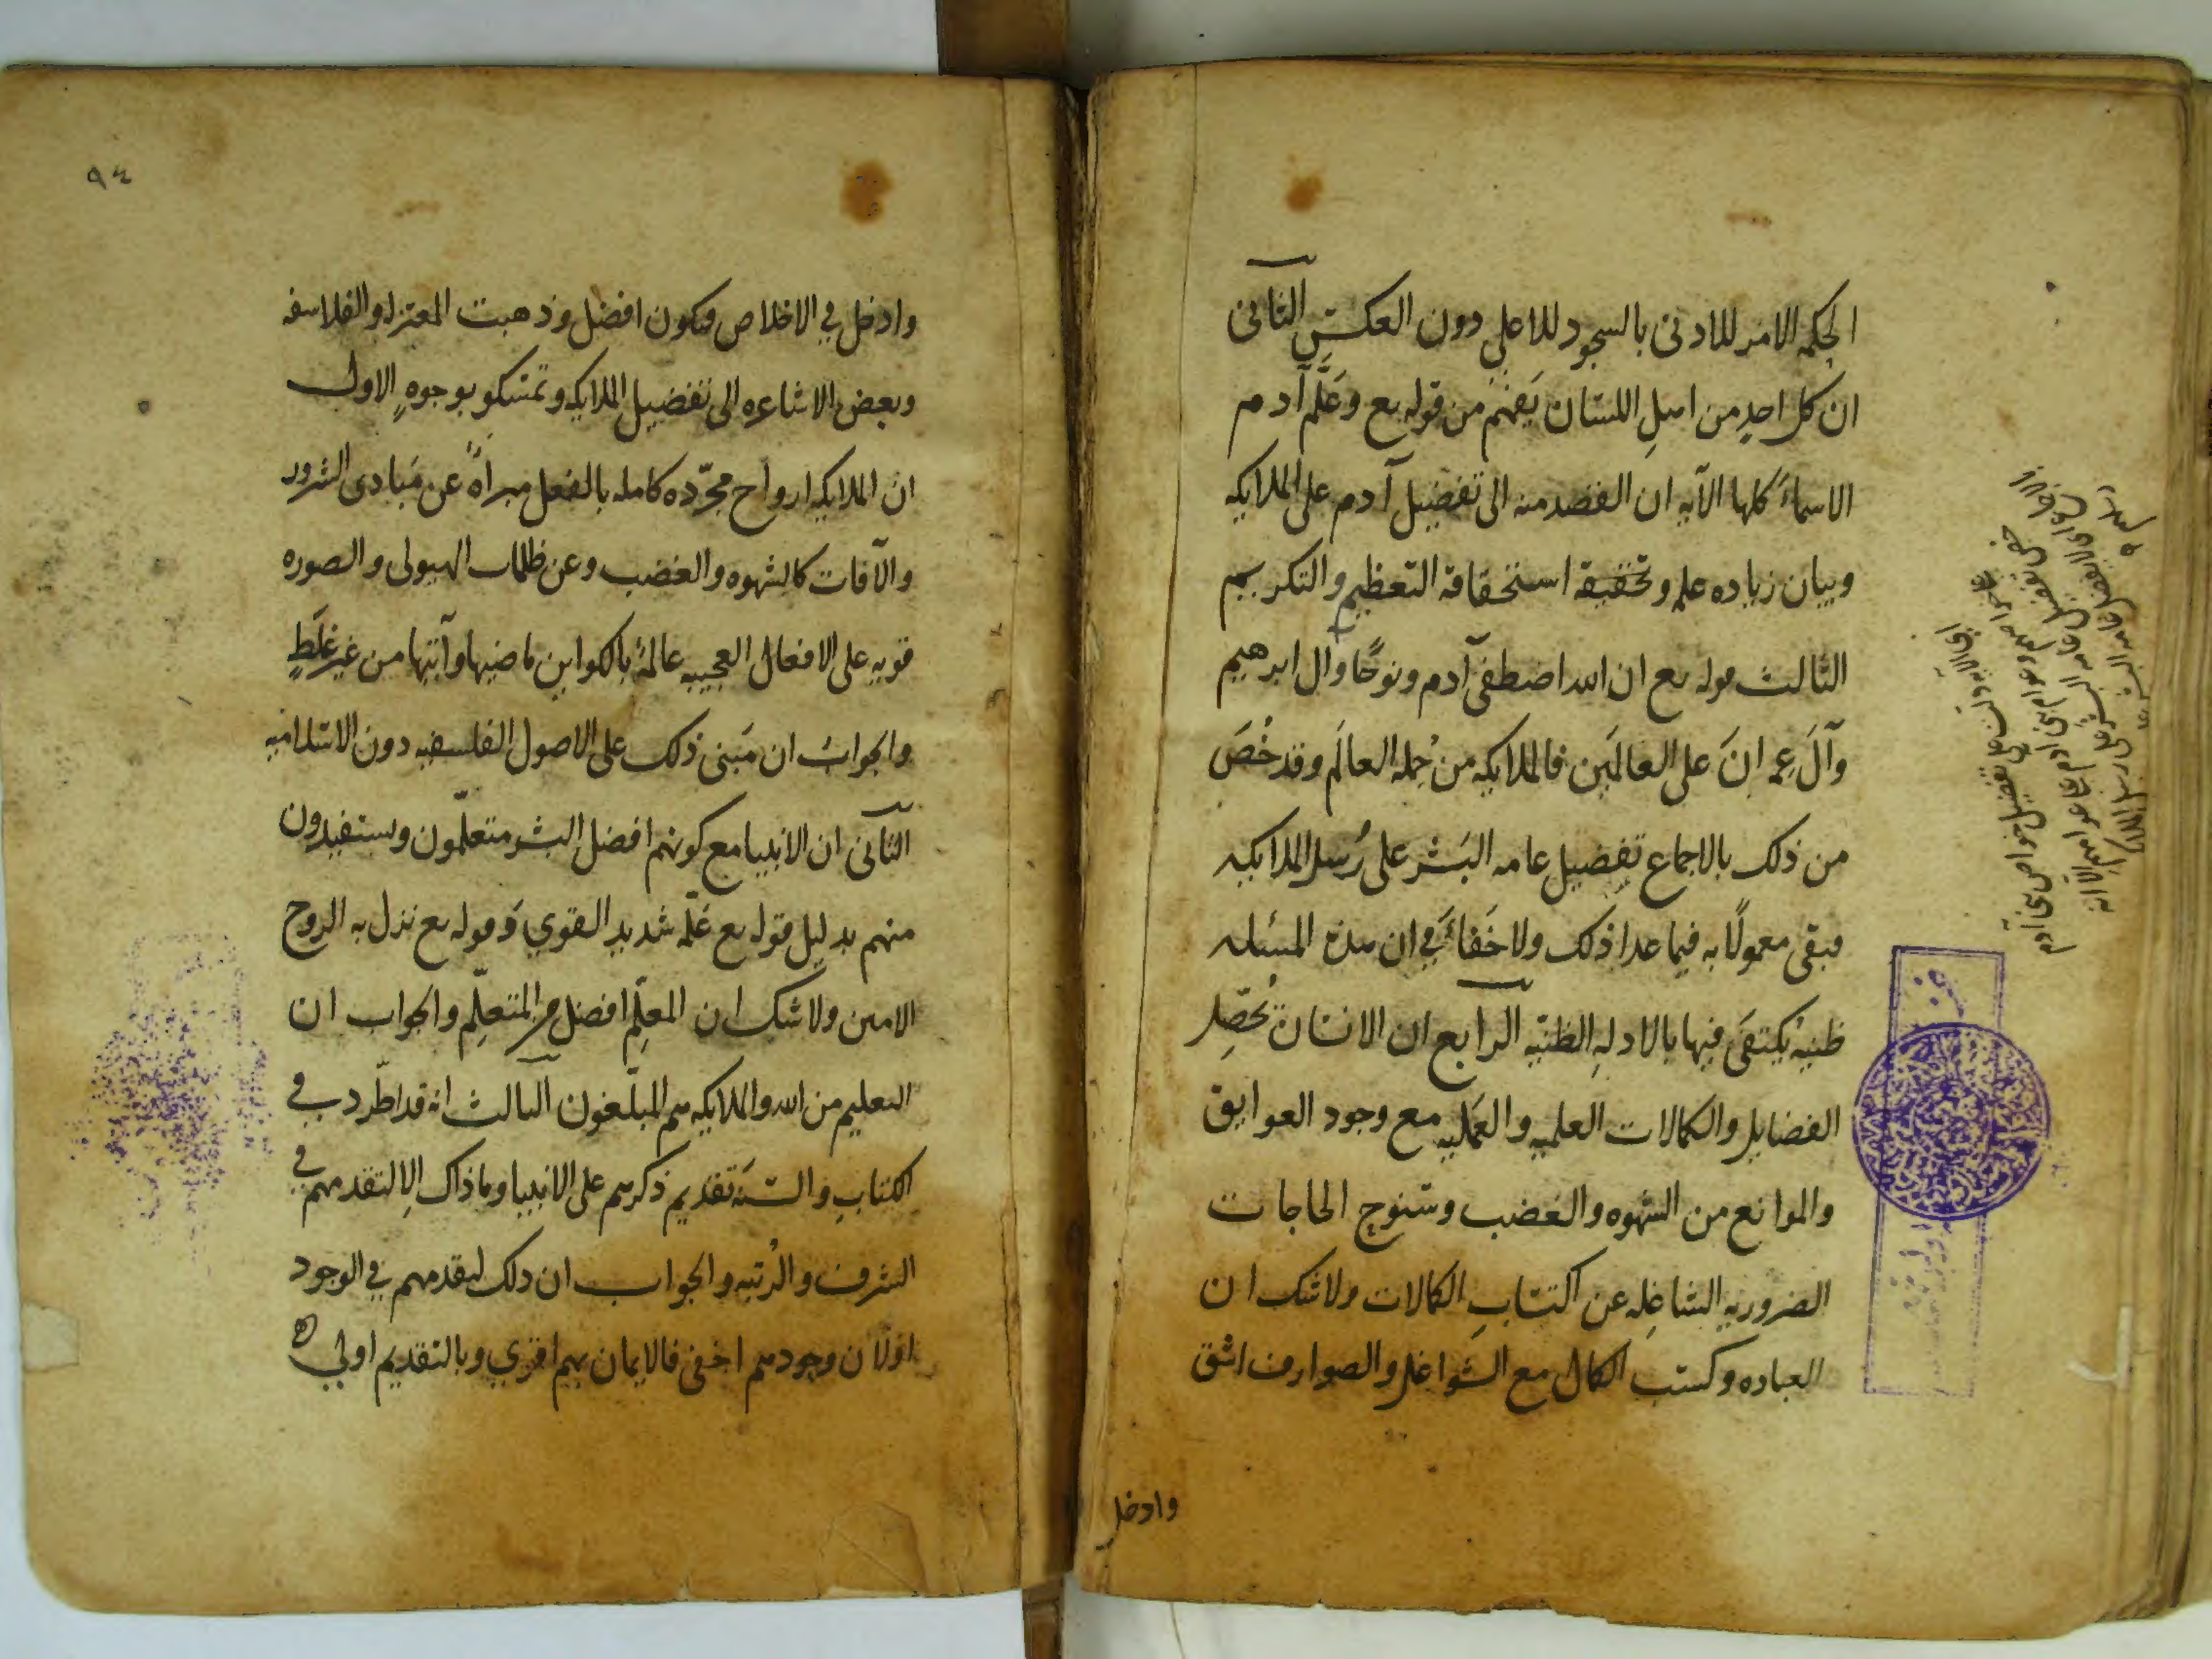 الحكمه الامر للادنى بالسجود للاعلى دون العكس الثانى
ان كل احدٍ من اهلِ اللسَان يَفهَم من قوله تع وعَلَّم آدم
الاسماءَ كلها الآيه ان القصد منه الى تفضيل آدم على الملايكه
وبيان زياده علمه وتحقيقه استحقاقه التعظيم والتكريم
الثالث قوله تع ان الله اصطفى آدم ونوحًا وآل ابرهيم
وآلَ عِمرانَ على العالمَين فالملايكه من جُمله العالَم وقد خُصَ
من ذلك بالاجماع تفضيل عامه البَشر على رُسل الملايكه
فبقى معمولًا به فيما عدا ذلك ولا خَفاءَ في ان هذه المسئله
ظنيه يُكتفَى فيها بالادلهِ الظنّيه الرابع ان الانسَان يُحَصِّل
الفضايل والكمالات العلميه والعَمليه مع وجود العوايق
والموانع من الشهوه والغضب وسُنوح الحاجات
الضروريه الشاغِله عن اكتسَابِ الكمالات ولا شك ان
العباده وكسَب الكمال مع الشَواغل والصوارف اشق
وادخل
٩٤
وادخل في الاخلاص فيكون افضل وذهبت المعتزله والفلاسفه
وبعض الاشاعره الى تفضيل الملايكه وتمسَكو بوجوهٍ الاول
ان الملايكه ارواح مجرّده كامله بالفعل مبراةً عن مَبادى الشرور
والآفات كالشهوه والغضب وعن ظلمات الهيولى والصوره
قويه على الافعال العجيبه عالمةً بالكواين ماضيها وآتيها من غير غلَطٍ
والجوابُ ان مَبنى ذلك على الاصول الفلسفيه دون الاسلاميه
الثانى ان الانبيا مع كونهم افضل البشر متعلّمون وستفيدون
منهم بدليل قوله تع عَلّمه شديد القوي وَقوله تع نزل به الروح
الامين ولا شك ان المعلِّم افضل من المتعلِّم والجواب ان
التعليم من الله والملايكه هم المبلّغون الثالث انه قد اطّرد في
الكتابِ والسَّنةَ تقديم ذكرهم على الانبيا وما ذاك الا لتقدمهم في
الشرف والرُتبه والجواب ان ذلك لتقدمهم في الوجود
اولان وجودهم اخفى فالايمان بهم اقوي وبالتقديم اولي